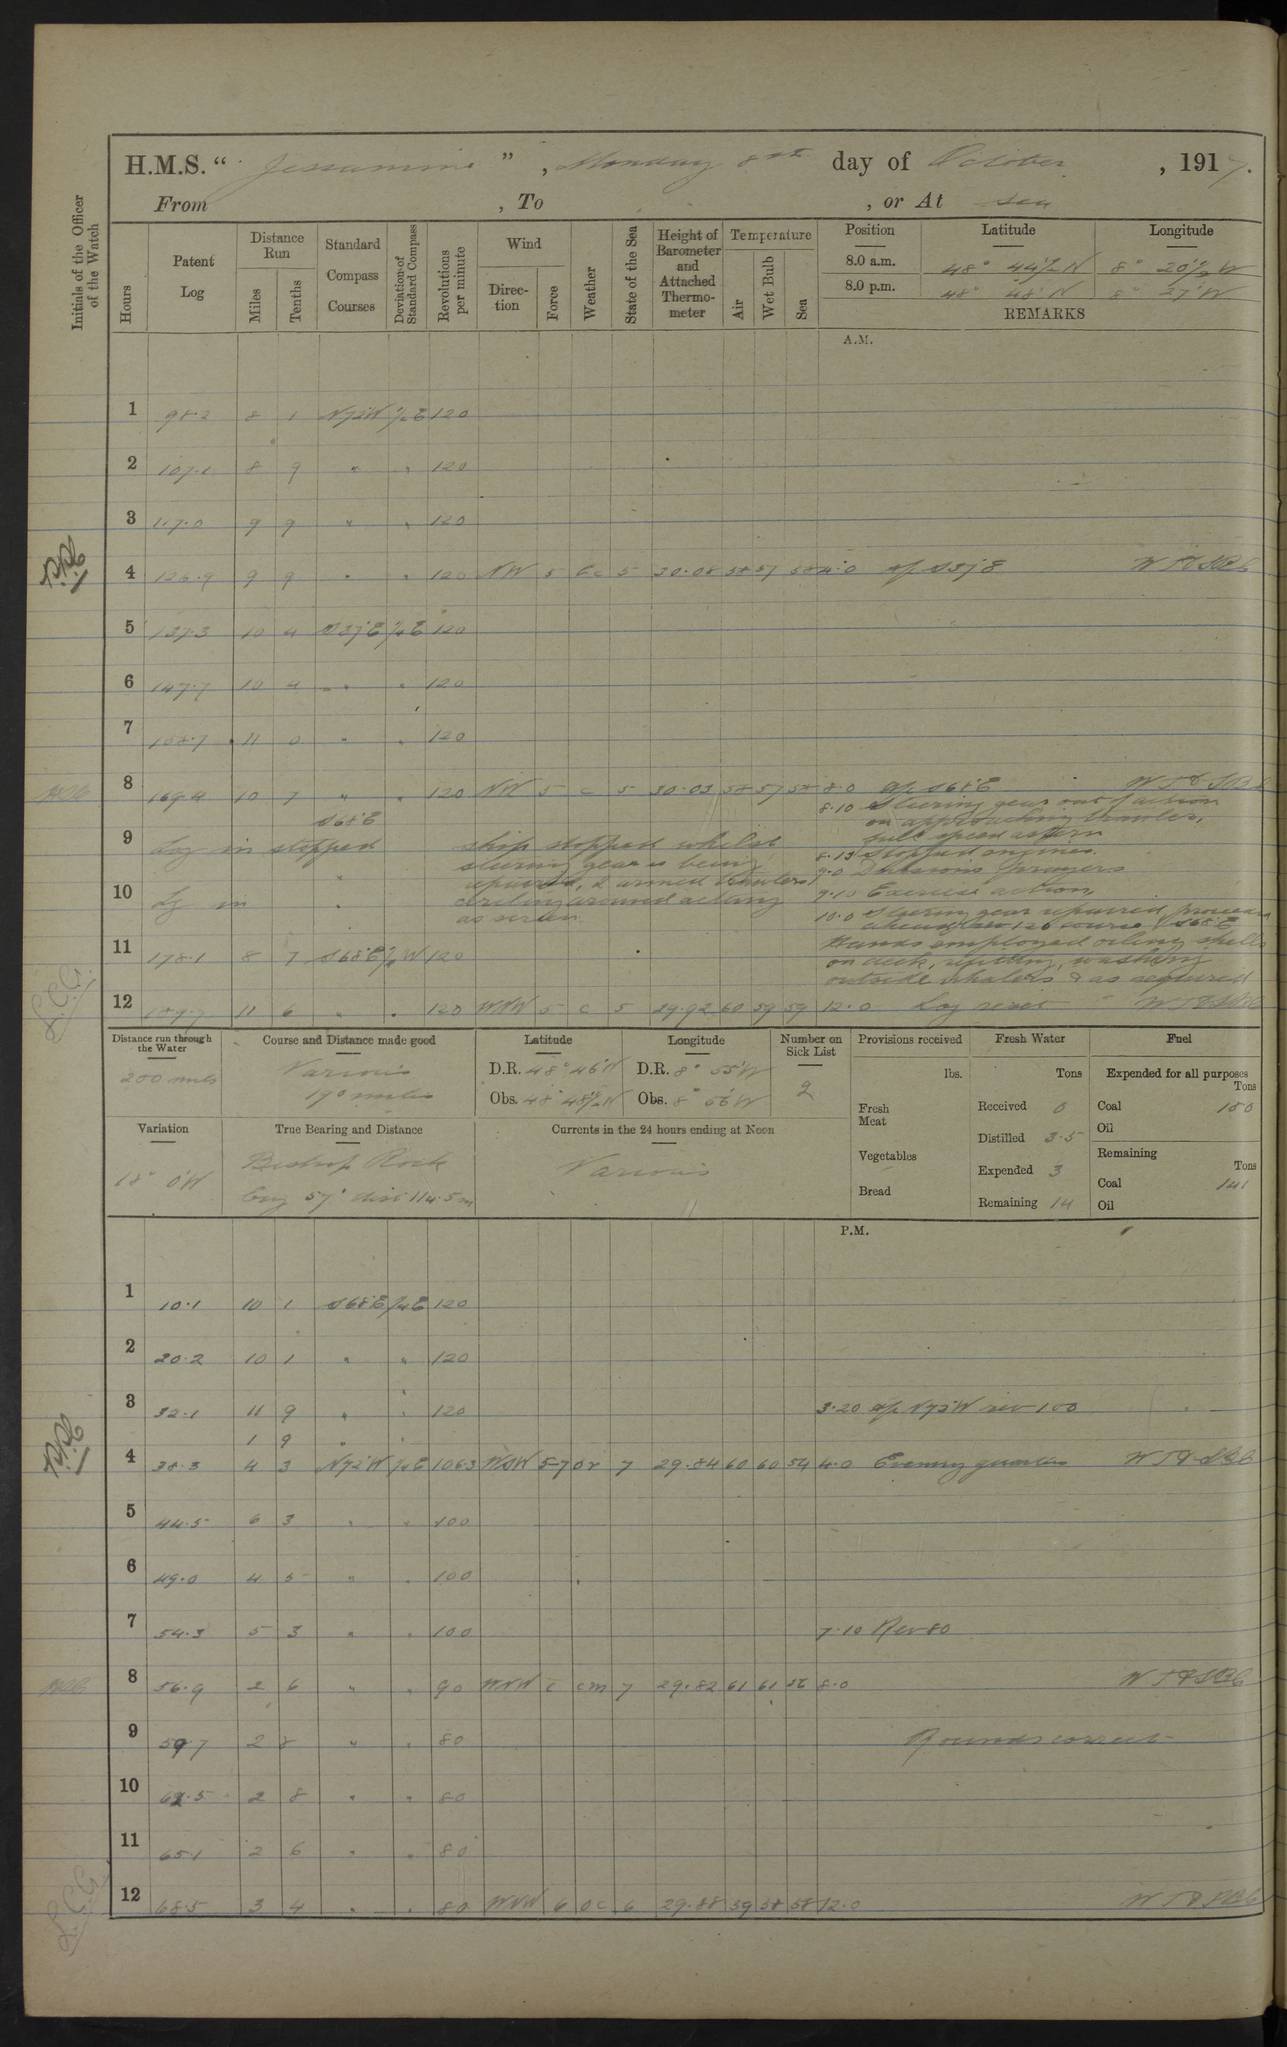 H.M.S. " Jessamine ", Monday 8th day of October, 1917.
From , To , or At sea
Initials of the Officer of the Watch
Hours
Patent Log
Distance Run
Miles
Tenths
Standard Compass Courses
Deviation of Standard Compass
Revolutions per minute
Wind
Direction
Force
Weather
State of the Sea
Height of Barometer and Attached Thermometer
Temperature
Air
Wet Bulb
Sea
Position Latitude Longitude
8.0 a.m. 48° 44½' N 8° 20½' W
8.0 p.m. 48° 48' N 8° 27' W
REMARKS
A.M.
1 98.2 8 1 N72W 120
2 107.1 8 9 " " 120
3 117.0 9 9 " " 120
4 126.9 9 9 " " 120 NW 5 bc 5 30.08 58 57 58 4.0 a/c S37E
5 137.3 10 4 S37E 120
6 147.7 10 4 " " 120
7 158.7 11 0 " " 120
8 169.4 10 7 " " 120 NW 5 c 5 30.03 58 57 58 8.0 a/c S68E
8.10 Steering gear out of action
on approaching trawler,
full speed astern
S68E
9 Log in stopped ship stopped whilst
steering gear is being
repaired, 2 armed trawlers
circling around acting
as screen
8.13 Stopped engines.
9.0 Divisions & prayers
10 Log in "
9.10 Exercise action,
10.0 Steering gear repaired proceed
ahead rev 120 course S68E
11 178.1 8 7 S68E 120
Hands employed oiling shells
on deck, refitting, washing
outside whalers & as required
12 189.7 11 6 " " 120 WNW 5 c 5 29.92 60 59 59 12.0 Log reset
Distance run through the Water
200 miles
Course and Distance made good
Various
190 miles
Latitude
D.R. 48° 46' N
Obs. 48° 48½' N
Longitude
D.R. 8° 55' W
Obs. 8° 56' W
Number on Sick List
2
Provisions received
lbs.
Fresh Meat
Vegetables
Bread
Fresh Water
Tons
Received 0
Distilled 3.5
Expended 3
Remaining 14
Fuel
Expended for all purposes
Tons
Coal 180
Oil
Remaining
Tons
Coal 141
Oil
Variation
18° 0'W
True Bearing and Distance
Bishop Rock
brg 57° dist 114.5 m
Currents in the 24 hours ending at Noon
Various
P.M.
1 10.1 10 1 S68E 120
2 20.2 10 1 " " 120
3 32.1 11 9 " " 120 3.20 a/c N72W rev 100
1 9 "
4 38.3 4 3 N72W 106.3 WSW 5-7 or 7 29.84 60 60 54 4.0 Evening quarters
5 44.5 6 3 " " 100
6 49.0 4 5 " " 100
7 54.3 5 3 " " 100 7.10 Rev 80
8 56.9 2 6 " " 90 WNW cm 7 29.82 61 61 8.0
9 59.7 2 8 " " 80 Rounds correct
10 62.5 2 8 " " 80
11 65.1 2 6 " " 80
12 68.5 3 4 " " 80 WNW 6 oc 6 29.88 59 58 58 12.0